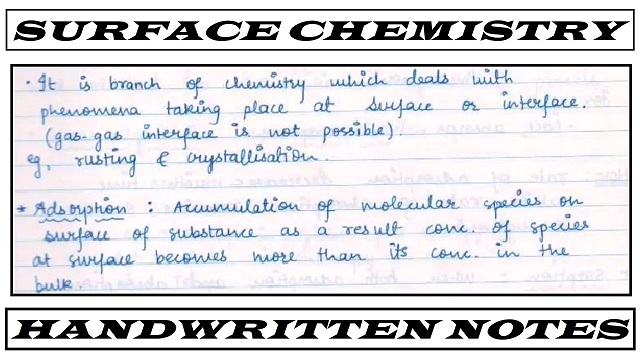 SURFACE CHEMISTRY
· It is branch of chemistry which deals with
phenomena taking place at surface or interface.
(gas-gas interface is not possible)
eg, rusting & crystallisation.
* Adsorption : Accumulation of molecular species on
surface of substance as a result conc. of species
at surface becomes more than its conc. in the
bulk
HANDWRITTEN NOTES